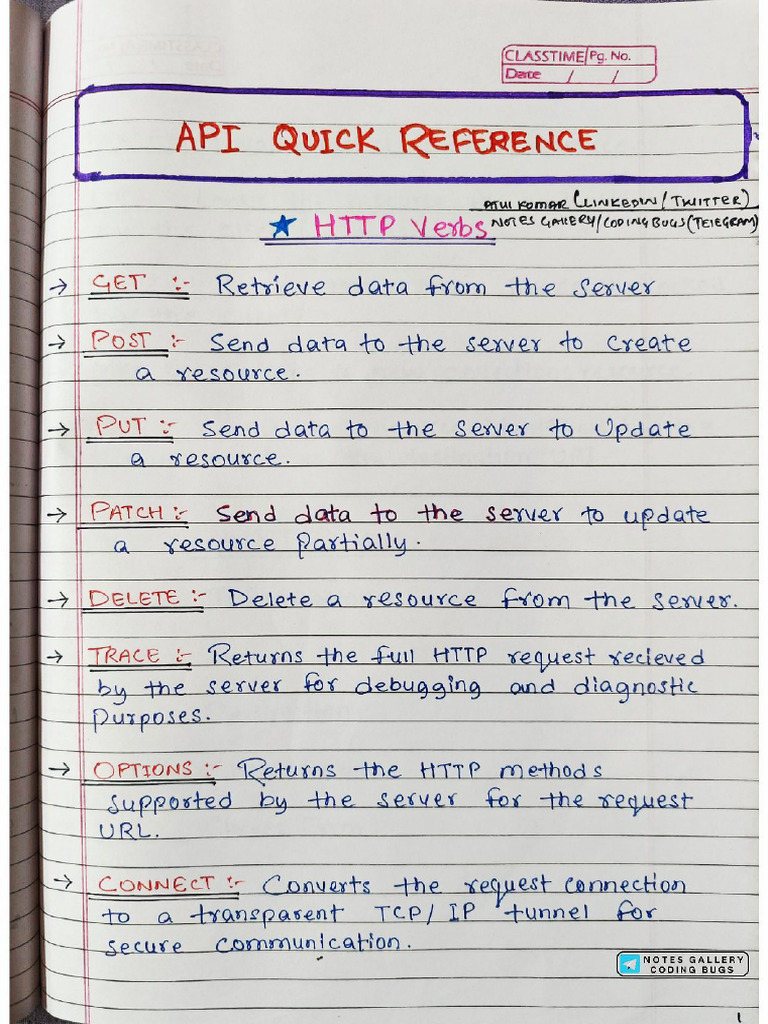 CLASSTIME Pg. No.
Date / /
API QUICK REFERENCE
ATUL KUMAR (LINKEDIN / TWITTER)
★ HTTP Verbs NOTES GALLERY/CODING BUGS (TELEGRAM)
→ GET :- Retrieve data from the server
→ POST :- Send data to the server to create
a resource.
→ PUT :- Send data to the server to update
a resource.
→ PATCH :- Send data to the server to update
a resource partially.
→ DELETE :- Delete a resource from the server.
→ TRACE :- Returns the full HTTP request recieved
by the server for debugging and diagnostic
purposes.
→ OPTIONS :- Returns the HTTP methods
supported by the server for the request
URL.
→ CONNECT :- Converts the request connection
to a transparent TCP/IP tunnel for
secure communication.
NOTES GALLERY
CODING BUGS
1